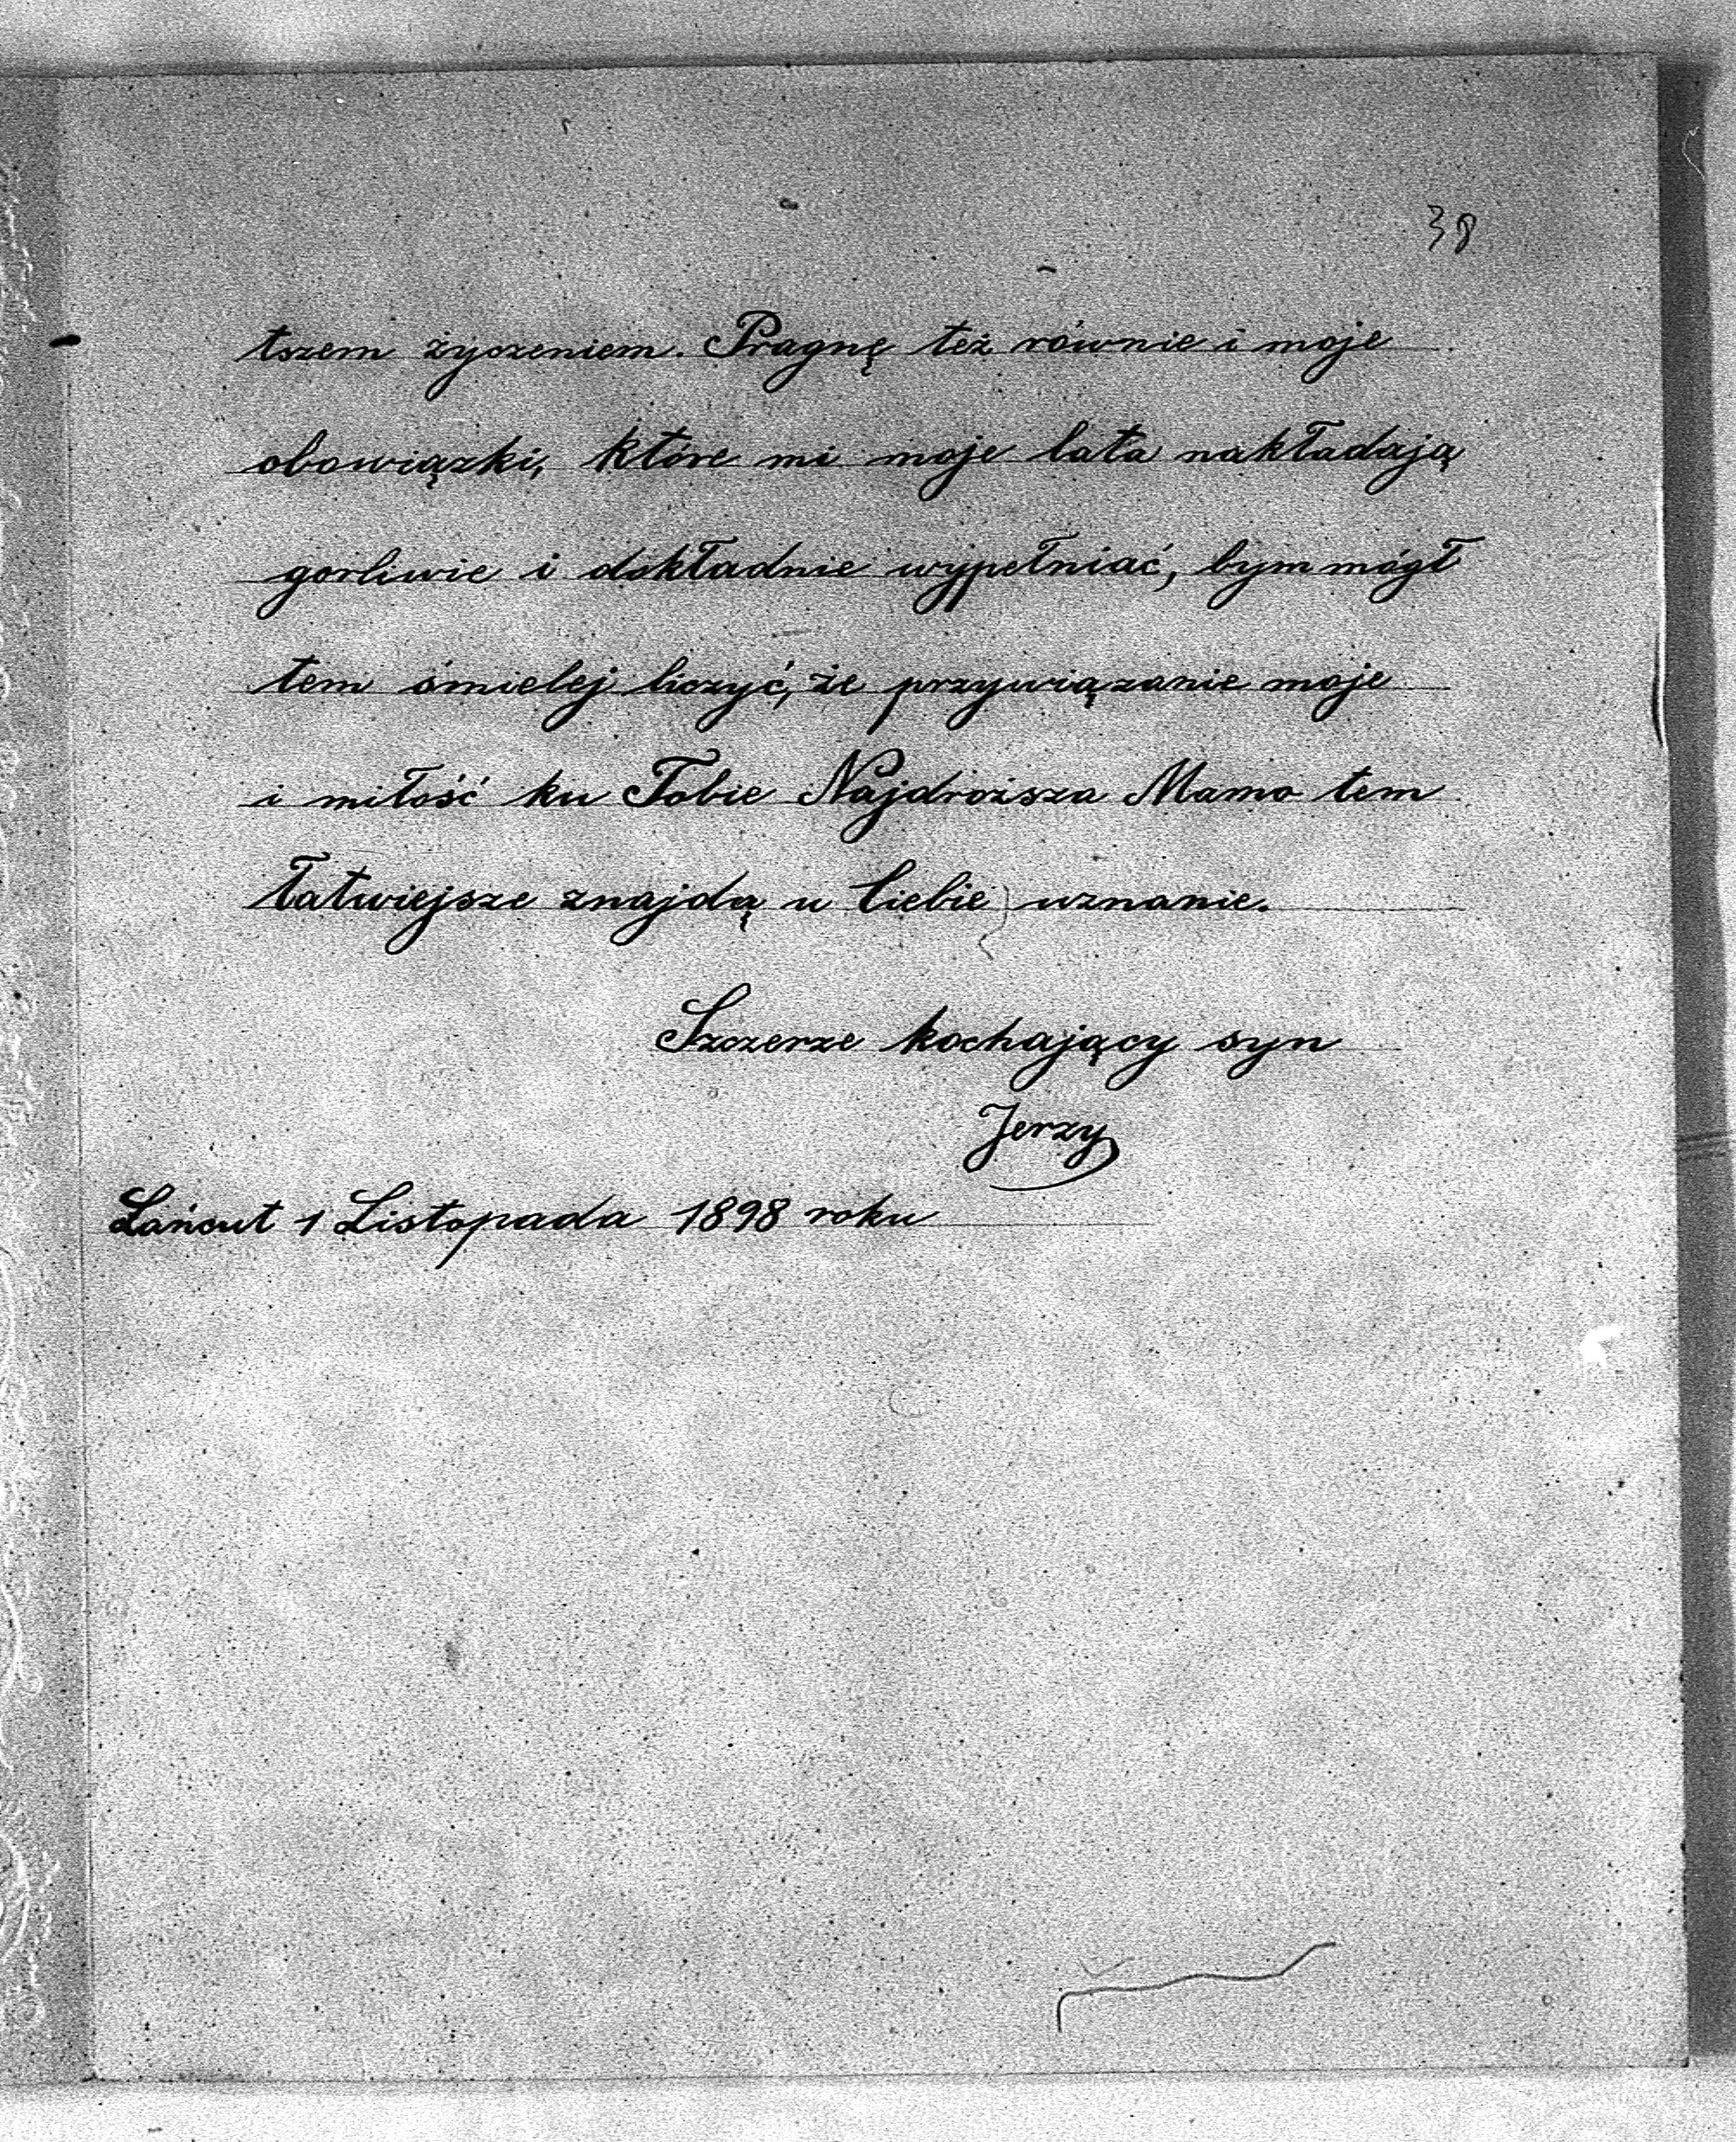 38
tszem życzeniem. Pragnę też równie i moje
obowiązki, które mi moje lata nakładają
gorliwie i dokładnie wypełniać, bym mógł
tem śmielej liczyć, że przywiązanie moje
i miłość ku Tobie Najdroższa Mamo tem
łatwiejsze znajdą u Ciebie uznanie.
Szczerze kochający syn
Jerzy
Łańcut 1 Listopada 1898 roku